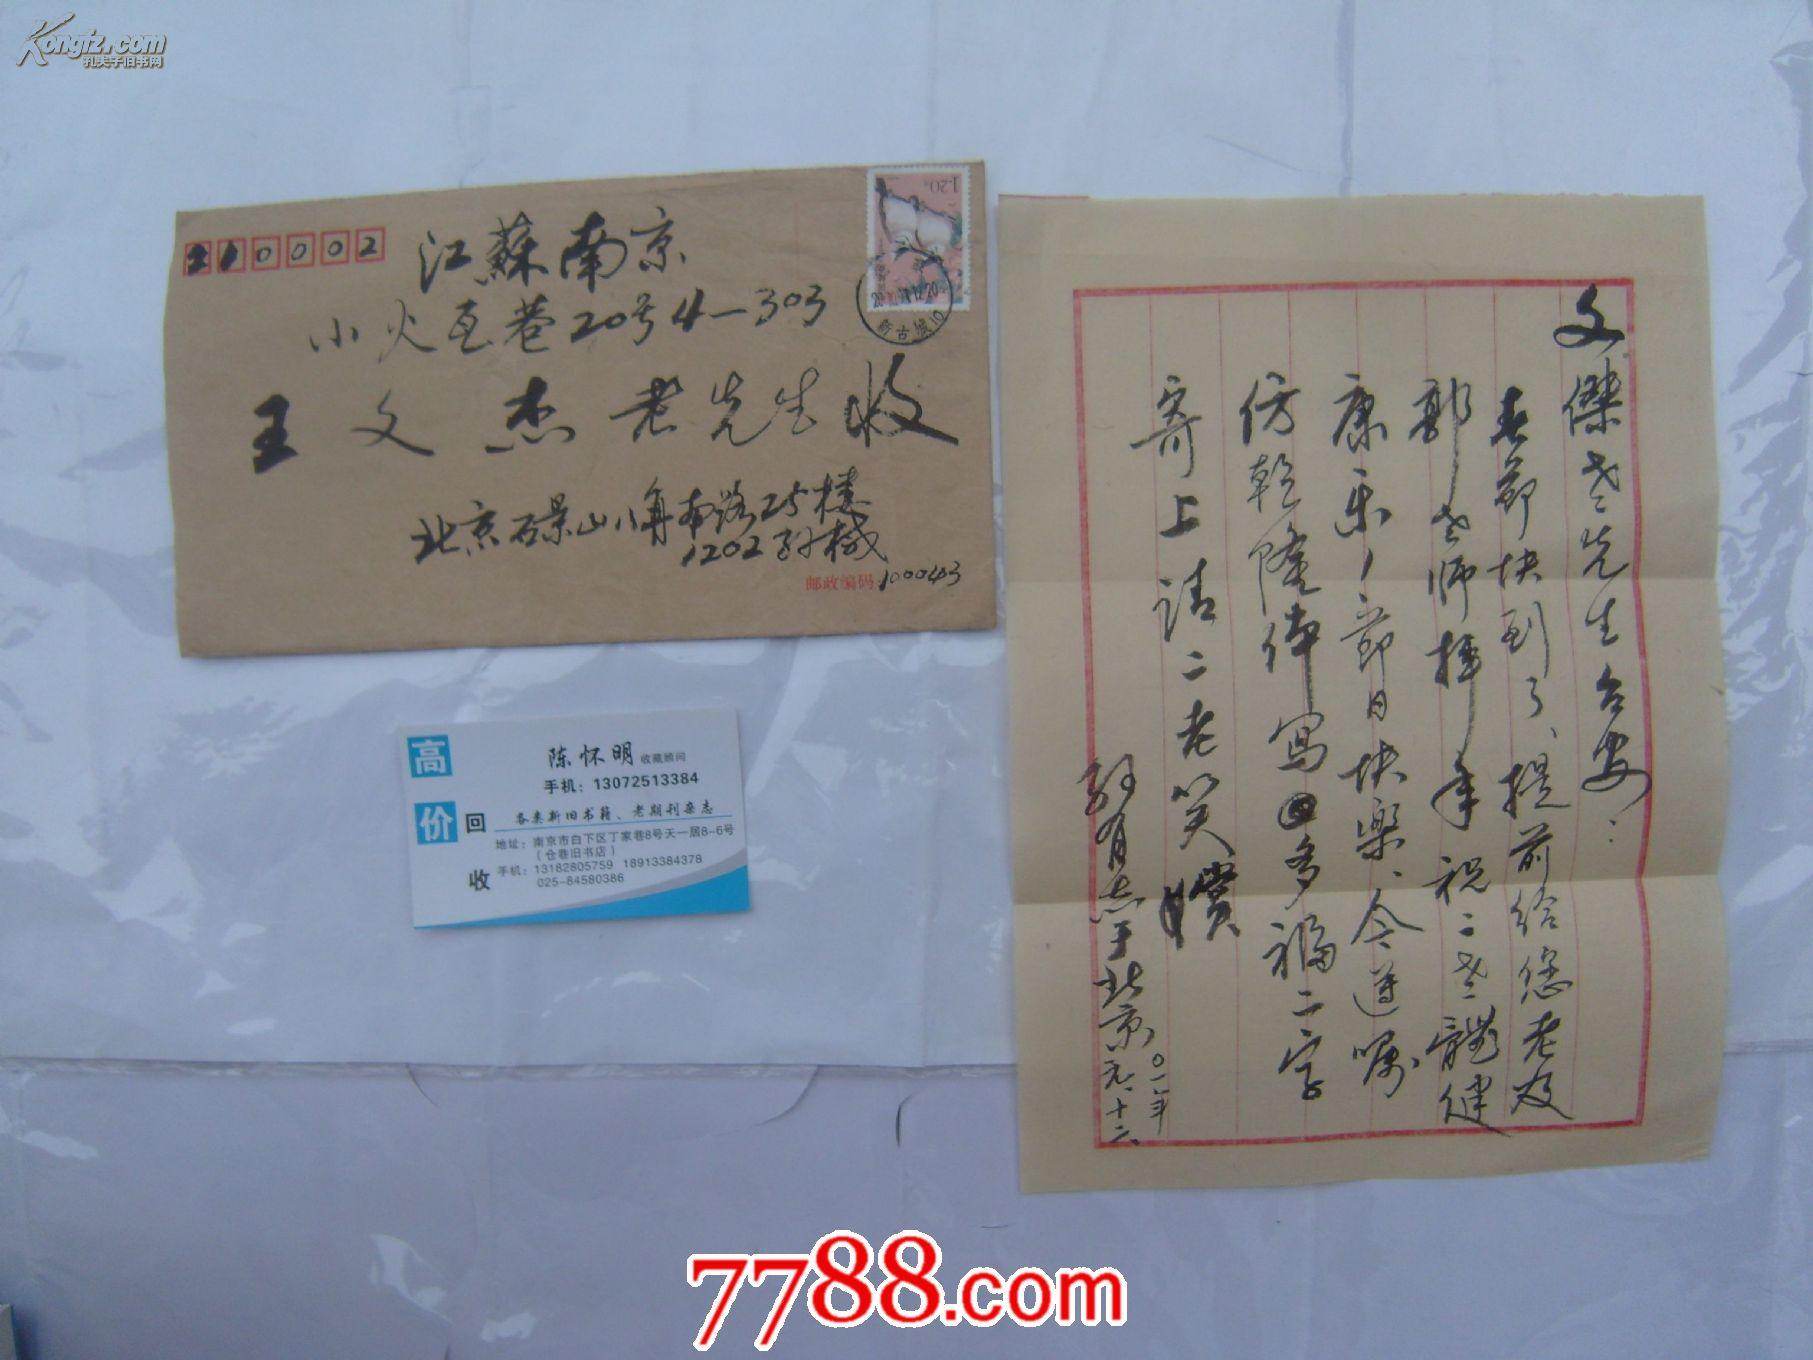 Kongfz.com
孔夫子旧书网
210002
江蘇南京
小火瓦巷20号4—303
王文杰老先生收
北京石景山八角南路25楼
1202 孙械
邮政编码 100043
1.20元
新古城10
文傑老先生台安：
春節快到了、提前给您老及
郭老师拜年祝二老體健
康乐！節日快樂、今遵嘱
仿乾隆御寫多福二字
寄上请二老笑
于北京
〇一一年
元、十二、
高价回收
陈怀明 收藏顾问
手机：13072513384
各类新旧书籍、老期刊杂志
地址：南京市白下区丁家巷8号天一居8-6号
（仓巷旧书店）
手机：13182805759 18913384378
025-84580386
7788.com